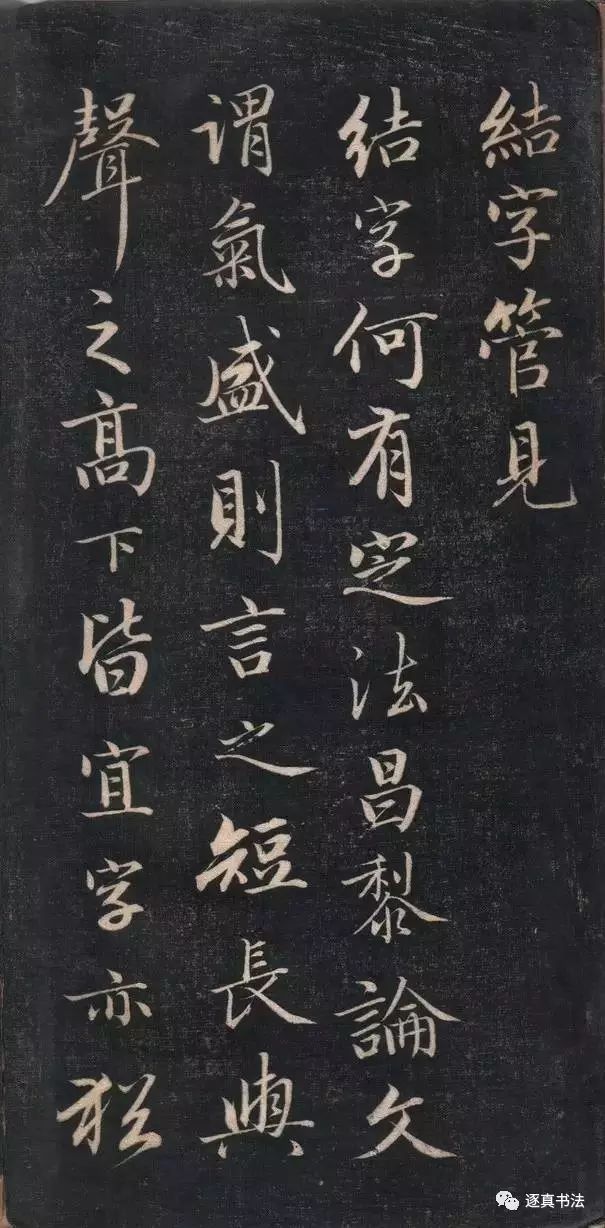 結字管見
結字何有定法昌黎論文
謂氣盛則言之短長與
聲之高下皆宜字亦猶
逐真书法